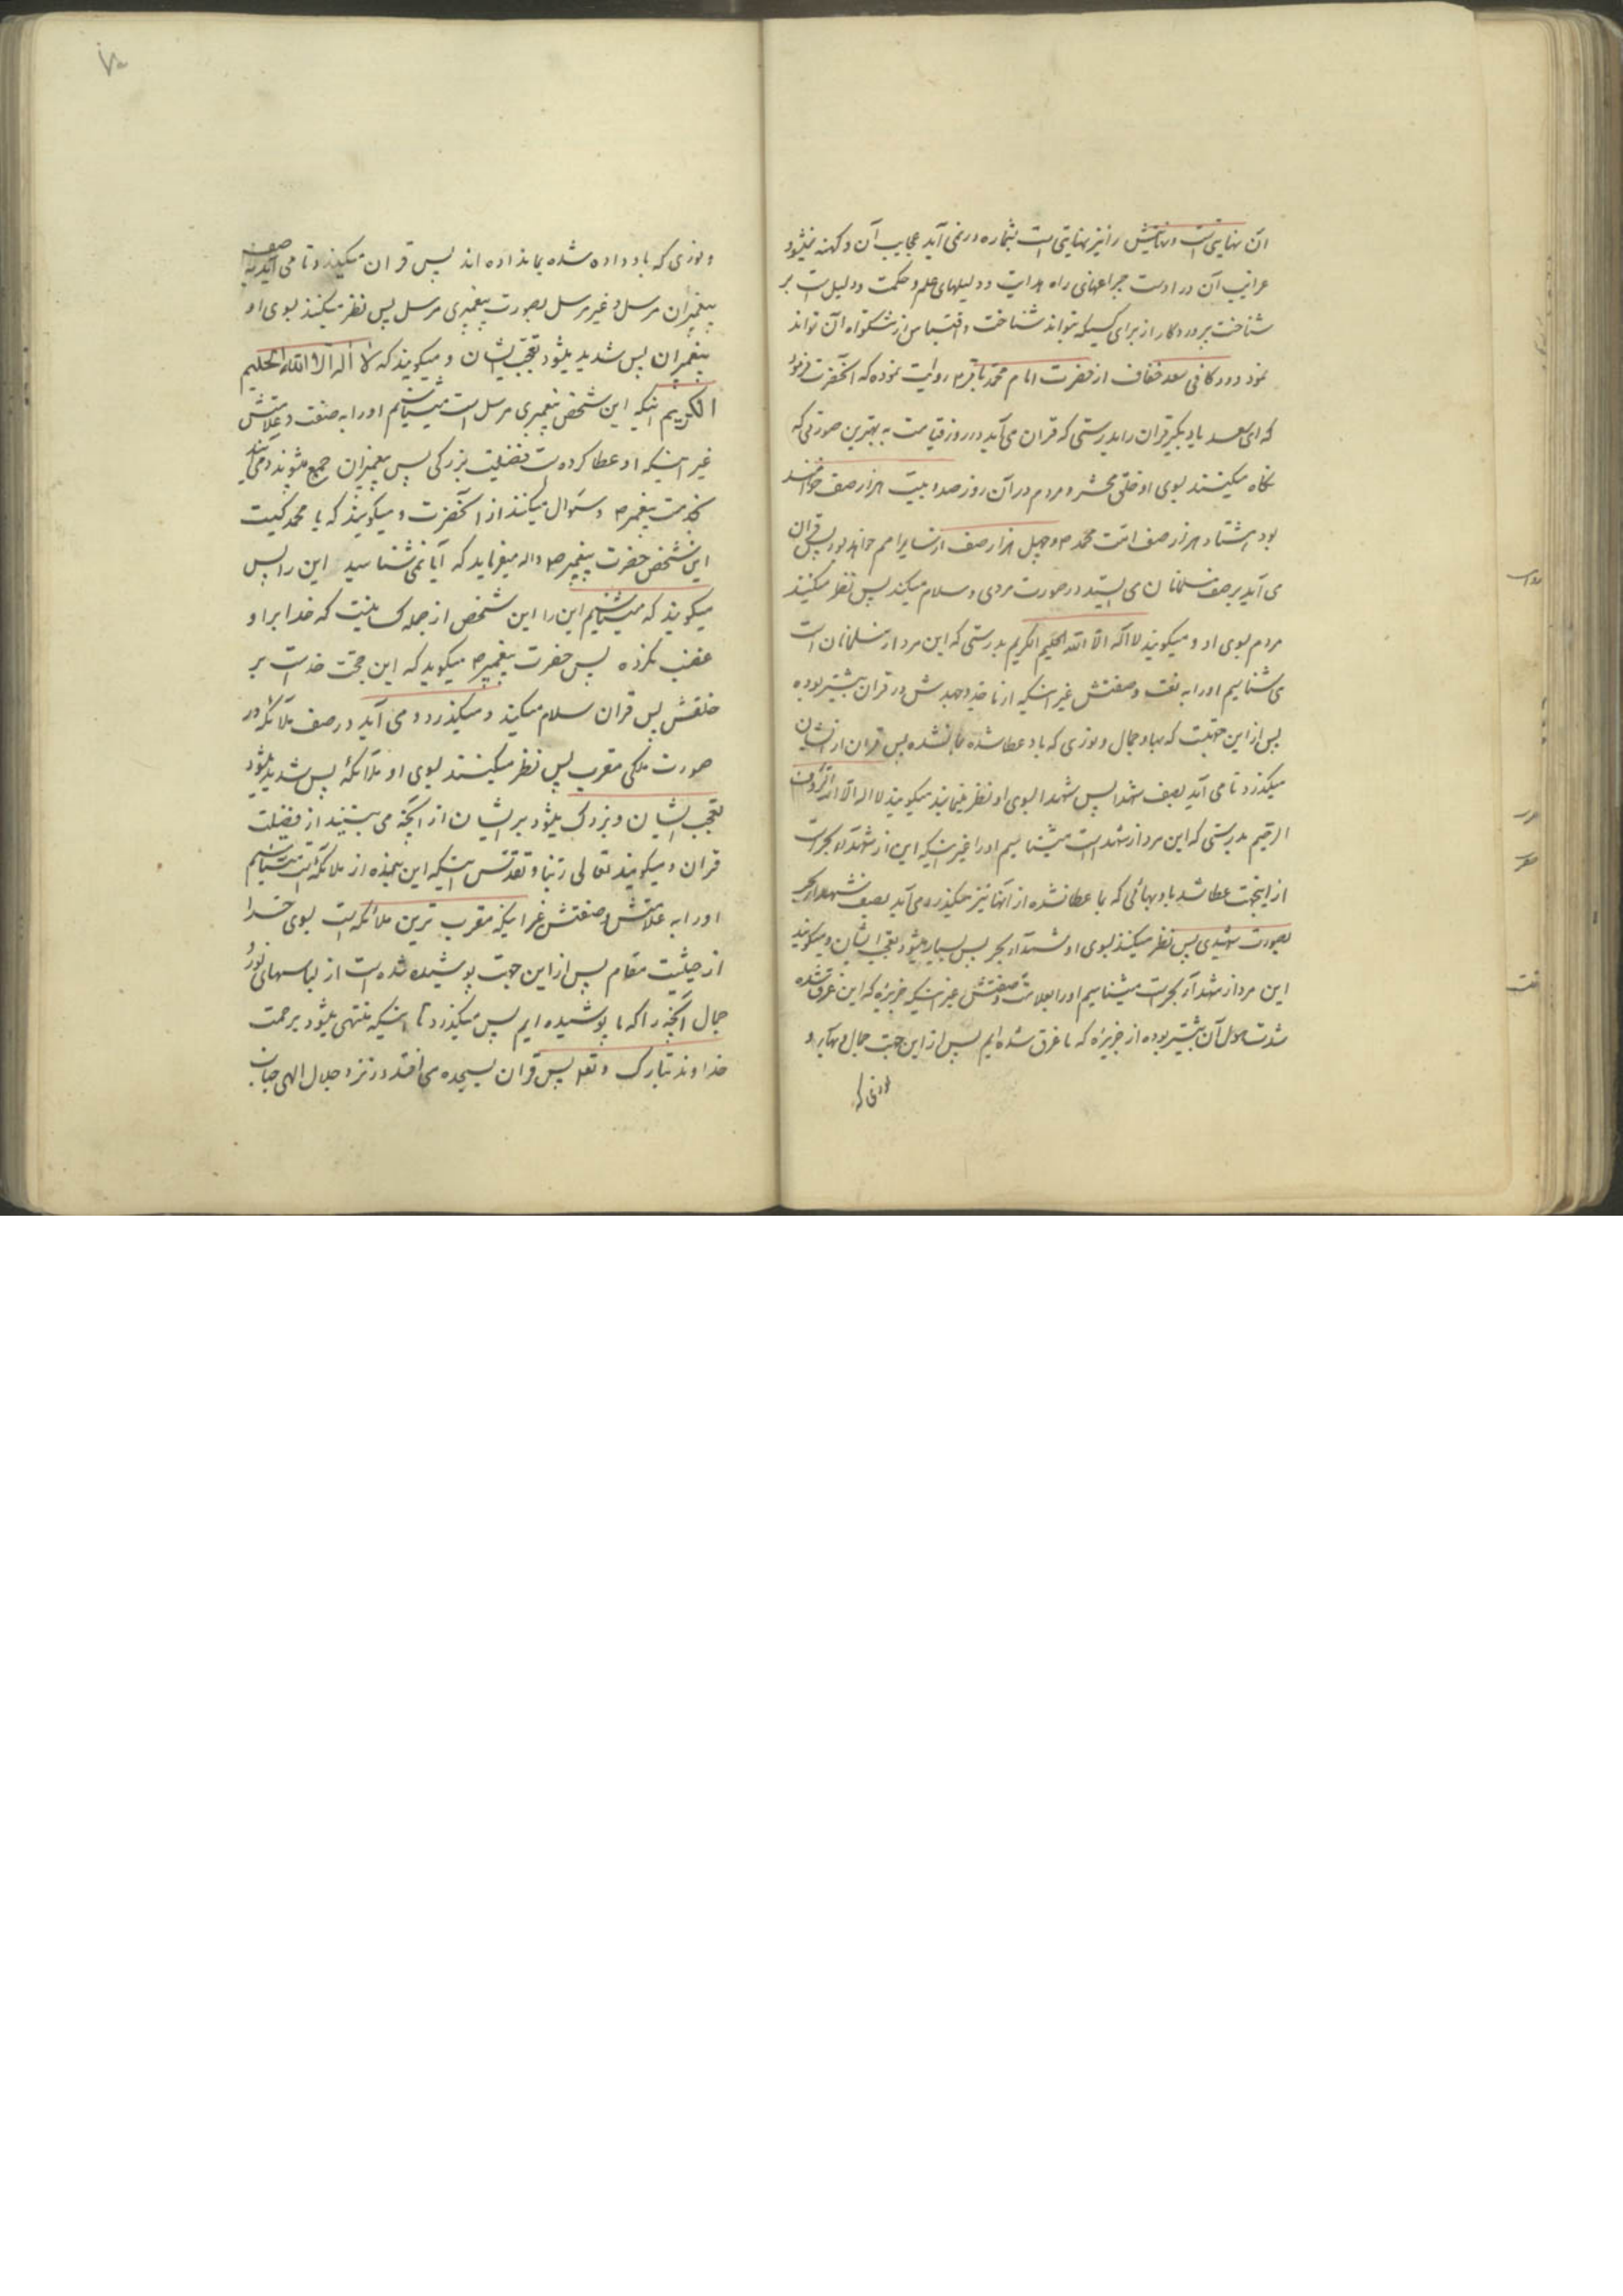 آن نهایتی است و نهایتش را نیز نهایتی است بشماره در نمی آید عجایب آن و کهنه نمیشود
غرایب آن در اوست چراغهای راه هدایت و دلیلهای علم و حکمت و دلیل است بر
شناخت پروردکار از برای کسیکه بتواند شناخت و اقتباس از مشکواة آن تواند
نمود و در کافی سعد خفاف از حضرت امام محمد باقر ع روایت نموده که آنحضرت فرمود
که ای سعد یاد بکیر قران را بدرستی که قران می آید در روز قیامت به بهترین صورتی که
نکاه میکنند بسوی او خلق محشر و مردم در آن روز صد و بیست هزار صف خواهند
بود هشتاد هزار صف امت محمد ص و چهل هزار صف از سایر امم خواهد بود پس قران
می آید بر صف مسلمانان می ایستد در صورت مردی و سلام میکند پس نظر میکنند
مردم بسوی او و میکویند لا اله الا الله الحلیم الکریم بدرستی که این مرد از مسلمانان است
می شناسیم او را به نعت و صفتش غیر اینکه از ما جد و جهدش در قران بیشتر بوده
پس از این جهتست که بهاء و جمال و نوری که باو عطا شده بما نشده پس قران از ایشان
میکذرد تا می آید بصف شهدا پس شهدا بسوی او نظر مینمایند میکویند لا اله الا الله الرب
الرحیم بدرستی که این مرد از شهدا است میشناسیم او را غیر اینکه این از شهدآء بحر است
از اینجهت عطا شد باو بهائی که بما عطا نشده از آنها نیز میکذرد می آید بصف شهداء بحر
بصورت شهیدی پس نظر میکنند بسوی او شهدآء بحر پس بسیار میشود تعجب ایشان و میکویند
این مرد از شهدآء بحر است میشناسیم او را بعلامت و صفتش غیر اینکه جزیره که این غرق شده
شدت هول آن بیشتر بوده از جزیره که ما غرق شده ایم پس از این جهت جمال و بهآء و
نوری که
و نوری که باو داده شده بما نداده اند پس قران میکذرد تا می آید به صف
پیغمبران مرسل و غیر مرسل بصورت پیغمبری مرسل پس نظر میکنند بسوی او
پیغمبران پس شدید میشود تعجب ایشان و میکویند که لا اله الا الله الحلیم
الکریم اینکه این شخص پیغمبری مرسل است میشناسیم او را به صفت و علامتش
غیر اینکه او عطا کرده شده است فضیلت بزرکی پس پیغمبران جمع میشوند و می آیند
بخدمت پیغمبر ص و سؤال میکنند از آنحضرت و میکویند که یا محمد کیست
این شخص حضرت پیغمبر ص و اله میفرماید که آیا نمی شناسید این را پس
میکویند که میشناسیم این را این شخص از جمله کسانیست که خدا بر او
غضب نکرده پس حضرت پیغمبر ص میکوید که این حجت خداست بر
خلقش پس قران سلام میکند و میکذرد و می آید در صف ملآئکه در
صورت ملکی مقرب پس نظر میکنند بسوی او ملآئکه پس شدید میشود
تعجب ایشان و بزرک میشود بر ایشان از آنچه می بینند از فضیلت
قران و میکویند تعالی ربنا و تقدس اینکه این بنده از ملائکه است میشناسیم
او را به علامتش و صفتش غیر اینکه مقرب ترین ملائکه است بسوی خدا
از حیثیت مقام پس از این جهت پوشیده شده است از لباسهای نور و
جمال آنچه را که ما نپوشیده ایم پس میکذرد تا اینکه منتهی میشود برحمت
خداوند تبارک و تعالی پس قران بسجده می افتد در نزد جلال الهی جناب